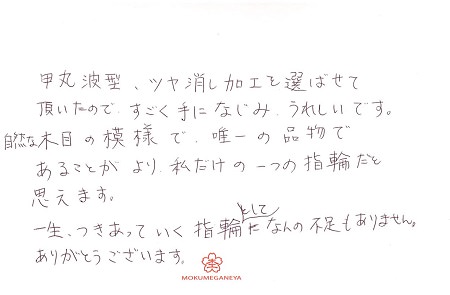 甲丸波型、ツヤ消し加工を選ばせて
頂いたので、すごく手になじみ、うれしいです。
自然な木目の模様で、唯一の品物で
あることがより、私だけの一つの指輪だと
思えます。
一生、つきあっていく指輪としてなんの不足もありません。
ありがとうございます。
MOKUMEGANEYA